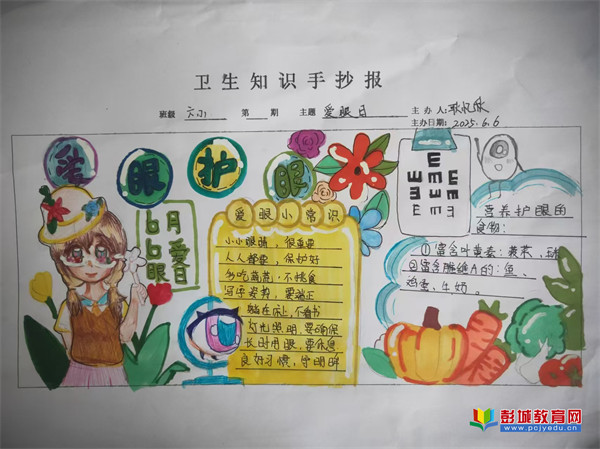 卫生知识手抄报
班级 六 第 期 主题 爱眼日 主办人:
主办日期: 2025.6.6
爱眼护眼
6月6日爱眼日
爱眼小常识
小小眼睛,很重要
人人都要,保护好
多吃蔬菜,不挑食
写字姿势,要端正
躺在床上,不看书
灯光照明,要确保
长时用眼,要休息
良好习惯,
营养护眼的
食物:
①富含叶黄素:菠菜、
②富含维生A的:鱼、
鸡蛋、牛奶。
彭城教育网
www.pcjyedu.cn